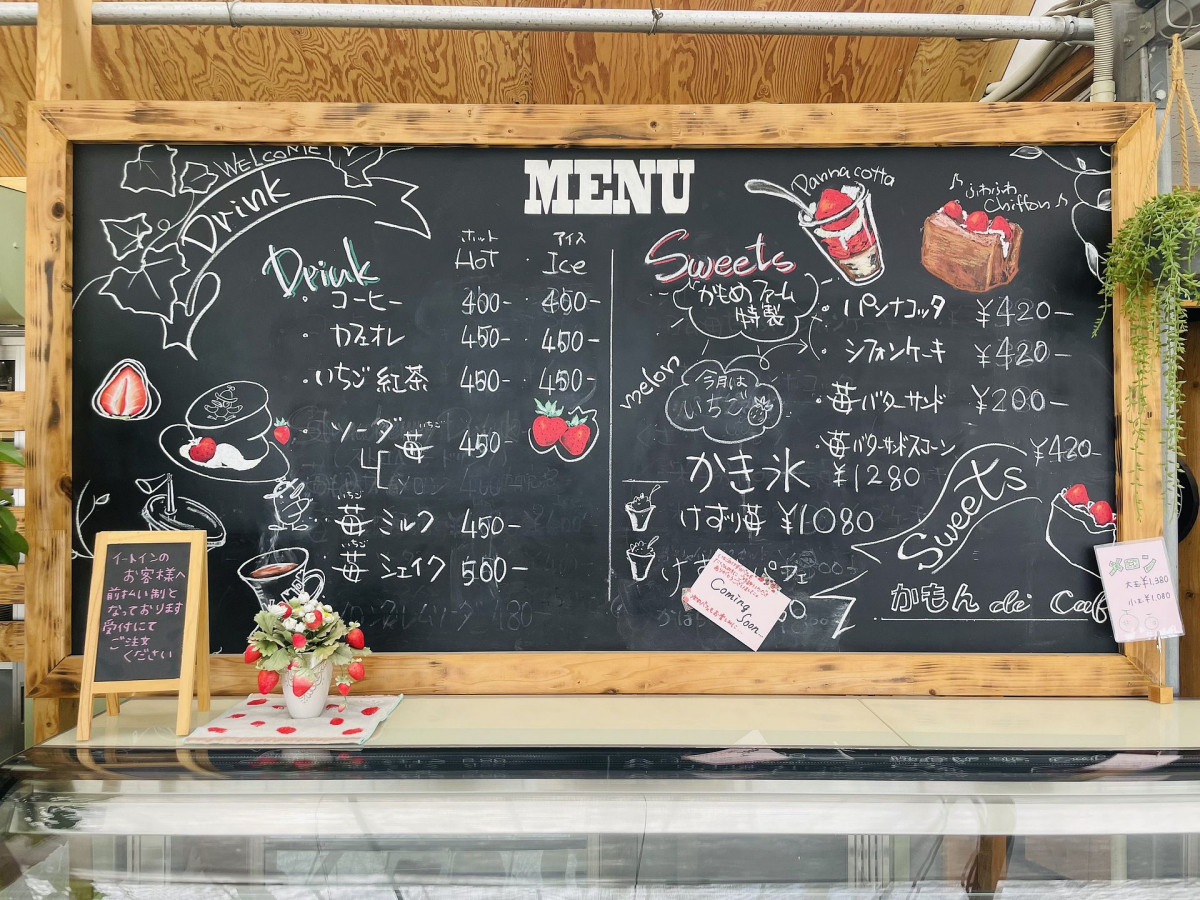 MENU
WELCOME!
Drink
Drink
ホット アイス
Hot ・ Ice
・コーヒー 400- 400-
・カフェオレ 450- 450-
・いちご紅茶 450- 450-
・ソーダ
いちご
苺 450-
いちご
・苺ミルク 450-
いちご
・苺シェイク 500-
Pannacotta
♪ふわふわ
Chiffon♪
Sweets
かもめファーム
特製
・パンナコッタ ¥420-
・シフォンケーキ ¥420-
melon
今月は
いちご
・苺バターサンド ¥200-
・苺バターサンドスコーン ¥420-
かき氷 ¥1280
けずり苺 ¥1080
けずり パフェ
Coming
Soon
Sweets
かもん de Caf
イートインの
お客様へ
前払い制と
なっております
受付にて
ご注文
ください
メロン
大玉¥1,380
小玉¥1,080